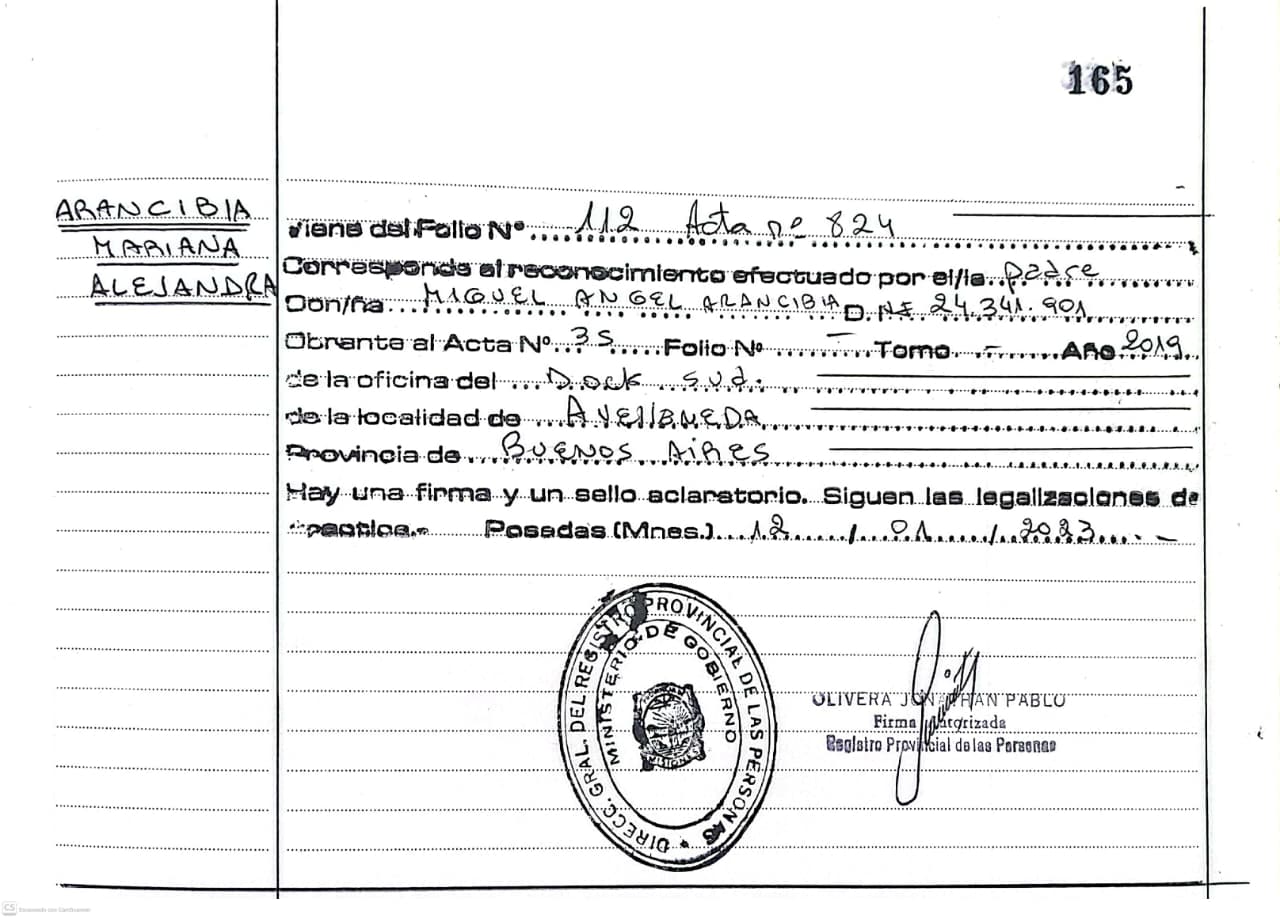 165
ARANCIBIA
MARIANA
ALEJANDRA
Viene del Folio Nº 112 Acta nº 824
Corresponde al reconocimiento efectuado por el/la padre
Don/ña MIGUEL ANGEL ARANCIBIA D.NI 24.341.901
Obrante al Acta Nº 35 Folio Nº - Tomo - Año 2019
de la oficina del Dock Sud.
de la localidad de AVELLANEDA
Provincia de BUENOS AIRES
Hay una firma y un sello aclaratorio. Siguen las legalizaciones de
practica.- Posadas (Mnes.) 12 / 01 / 2023 -
DIRECC. GRAL. DEL REGISTRO PROVINCIAL DE LAS PERSONAS
MINISTERIO DE GOBIERNO
MISIONES
OLIVERA JONATHAN PABLO
Firma Autorizada
Registro Provincial de las Personas
CS Escaneado con CamScanner